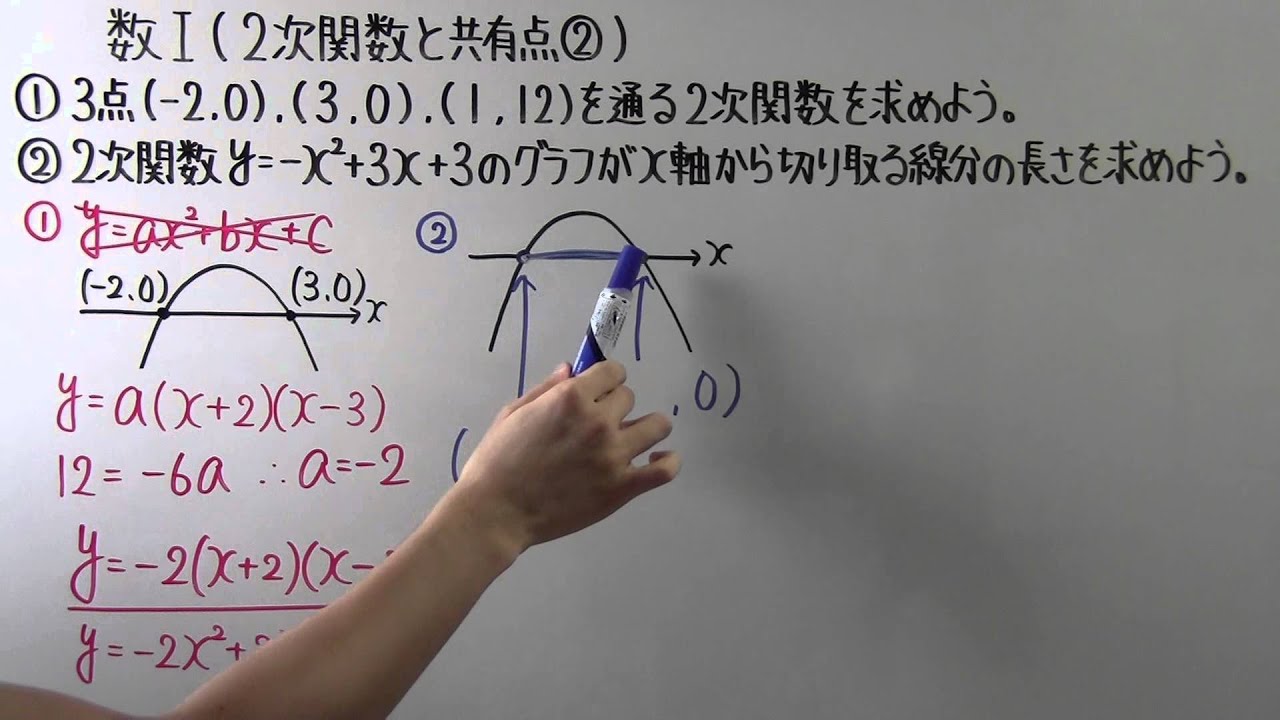 数Ⅰ(2次関数と共有点②)
①3点(-2,0),(3,0),(1,12)を通る2次関数を求めよう。
②2次関数y=-x²+3x+3のグラフがx軸から切り取る線分の長さを求めよう。
① y=ax²+bx+c
(-2,0) (3,0) x
y=a(x+2)(x-3)
12=-6a ∴a=-2
y=-2(x+2)(x-
y=-2x²+
② x
( ,0)